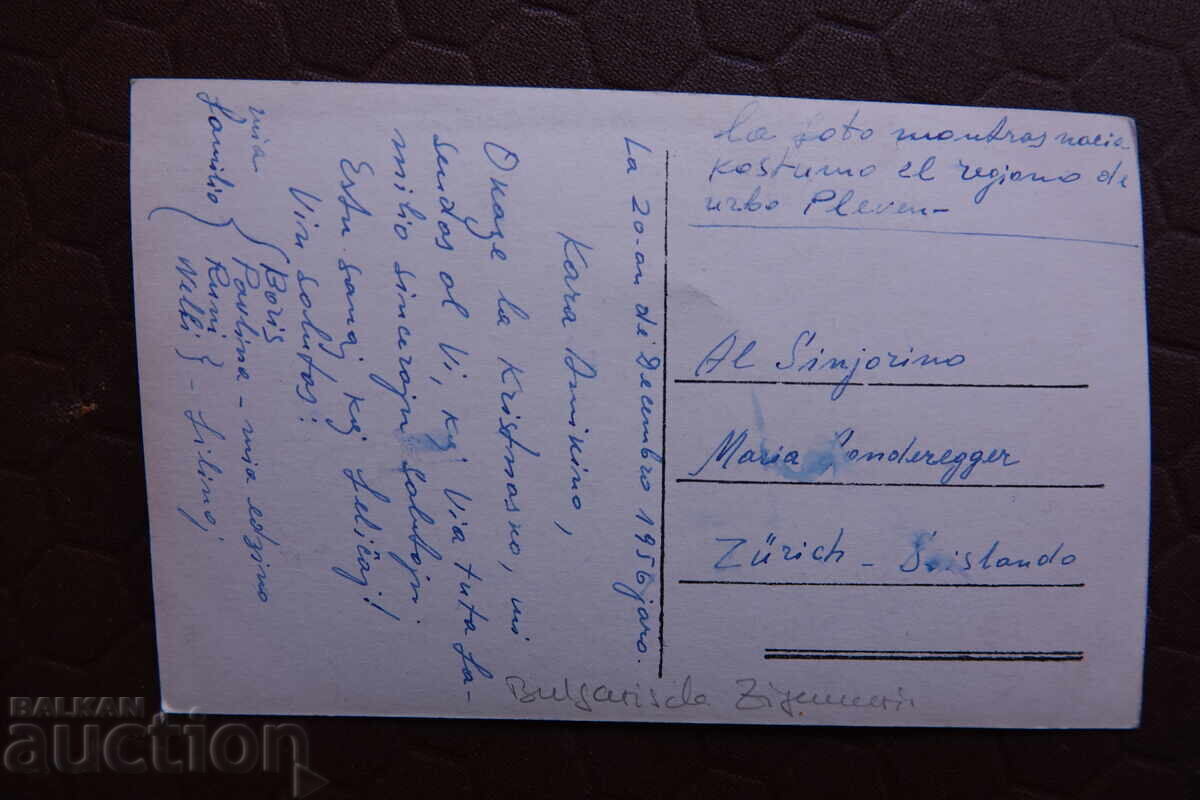 La foto montras nacia
kostumo el regiono de
urbo Pleven-
La 20-an de Decembro 1956 jaro.
Kara Amikino,
Okaze la Kristnasko, mi
sendas al Vi, kaj Via tuta fa-
milio sincerajn salutojn.
Estu sanaj kaj feliĉaj!
Vin salutas:
mia
familio
Boris
Pavlina - mia edzino
Rumi
Nelli - filinoj
Al Sinjorino
Maria Sonderegger
Zürich - Svislando
Bulgarische Zigeunerin
BALKAN
auction